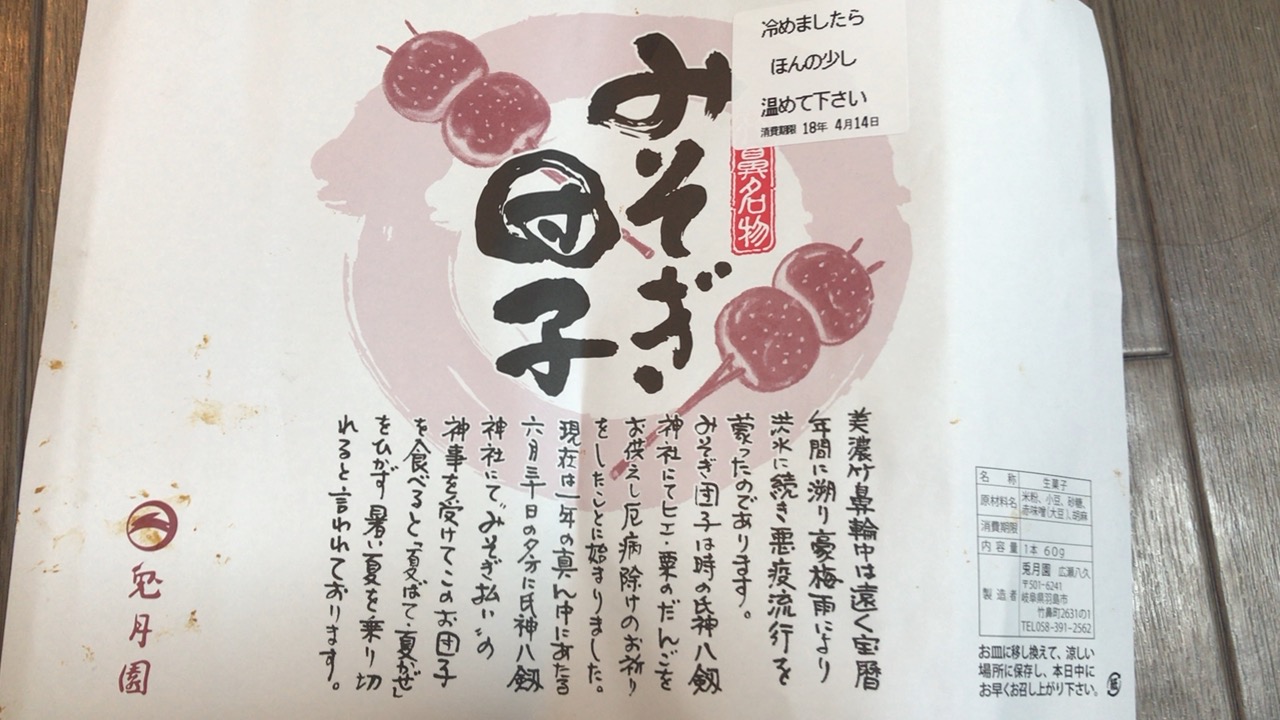 みそぎ
団子
鼻名物
冷めましたら
ほんの少し
温めて下さい
消費期限 18年 4月14日
美濃竹鼻輪中は遠く宝暦
年間に溯り豪梅雨により
洪水に続き悪疫流行を
蒙ったのであります。
みそぎ団子は時の氏神八剱
神社にてヒエ・粟のだんごを
お供えし厄病除けのお祈り
をしたことに始まりました。
現在は一年の真ん中にあたる
六月三十日の夕方に氏神八剱
神社にてみそぎ払いの
神事を受けてこのお団子
を食べると「夏ばて・夏かぜ」
をひかず暑い夏を乗り切
れると言われております。
兎月園
名 称 生菓子
原材料名 米粉、小豆、砂糖、
赤味噌(大豆)、胡麻
消費期限
内容量 1本 60g
製造者 兎月園 広瀬八久
〒501-6241
岐阜県羽島市
竹鼻町2631の1
TEL058-391-2562
お皿に移し換えて、涼しい
場所に保存し、本日中に
お早くお召し上がり下さい。